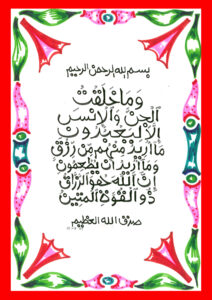 بسم الله الرحمن الرحيم
وَمَا خَلَقْتُ
الْجِنَّ وَالْإِنْسَ
إِلَّا لِيَعْبُدُونِ
مَا أُرِيدُ مِنْهُمْ مِنْ رِزْقٍ
وَمَا أُرِيدُ أَنْ يُطْعِمُونِ
إِنَّ اللَّهَ هُوَ الرَّزَّاقُ
ذُو الْقُوَّةِ الْمَتِينُ
صدق الله العظيم